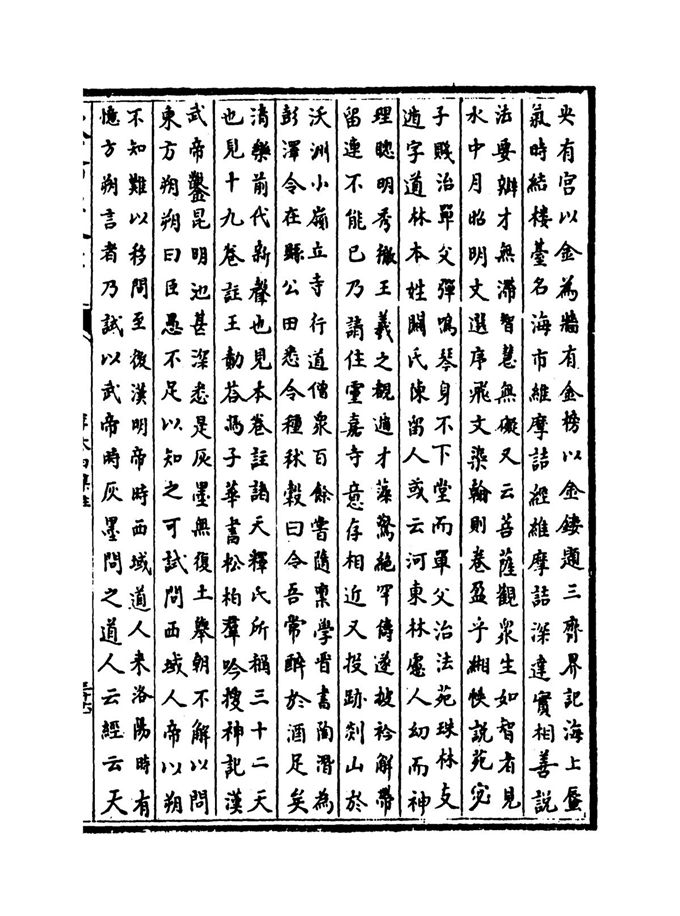 央有宫以金為牆有金榜以金鏤題三齊界記海上蜃
氣時結樓臺名海市維摩詰經維摩詰深達實相善説
法要辯才無滯智慧無礙又云菩薩觀衆生如智者見
水中月昭明文選序飛文染翰則卷盈乎緗帙説苑宓
子賤治單父彈鳴琴身不下堂而單父治法苑珠林支
遁字道林本姓闗氏陳留人或云河東林慮人幼而神
理聰明秀徹王羲之覩遁才藻驚絶罕儔遂披衿解帶
留連不能已乃請住靈嘉寺意存相近又投跡剡山於
沃洲小嶺立寺行道僧衆百餘嘗隨稟學晉書陶潛為
彭澤令在縣公田悉令種秫榖曰令吾常醉於酒足矣
清樂前代新聲也見本卷註諸天釋氏所稱三十二天
也見十九卷註王勃荅馮子華書松柏羣吟搜神記漢
武帝鑿昆明池甚深悉是灰墨無復土舉朝不解以問
東方朔朔曰臣愚不足以知之可試問西域人帝以朔
不知難以移問至後漢明帝時西域道人來洛陽時有
憶方朔言者乃試以武帝時灰墨問之道人云經云天